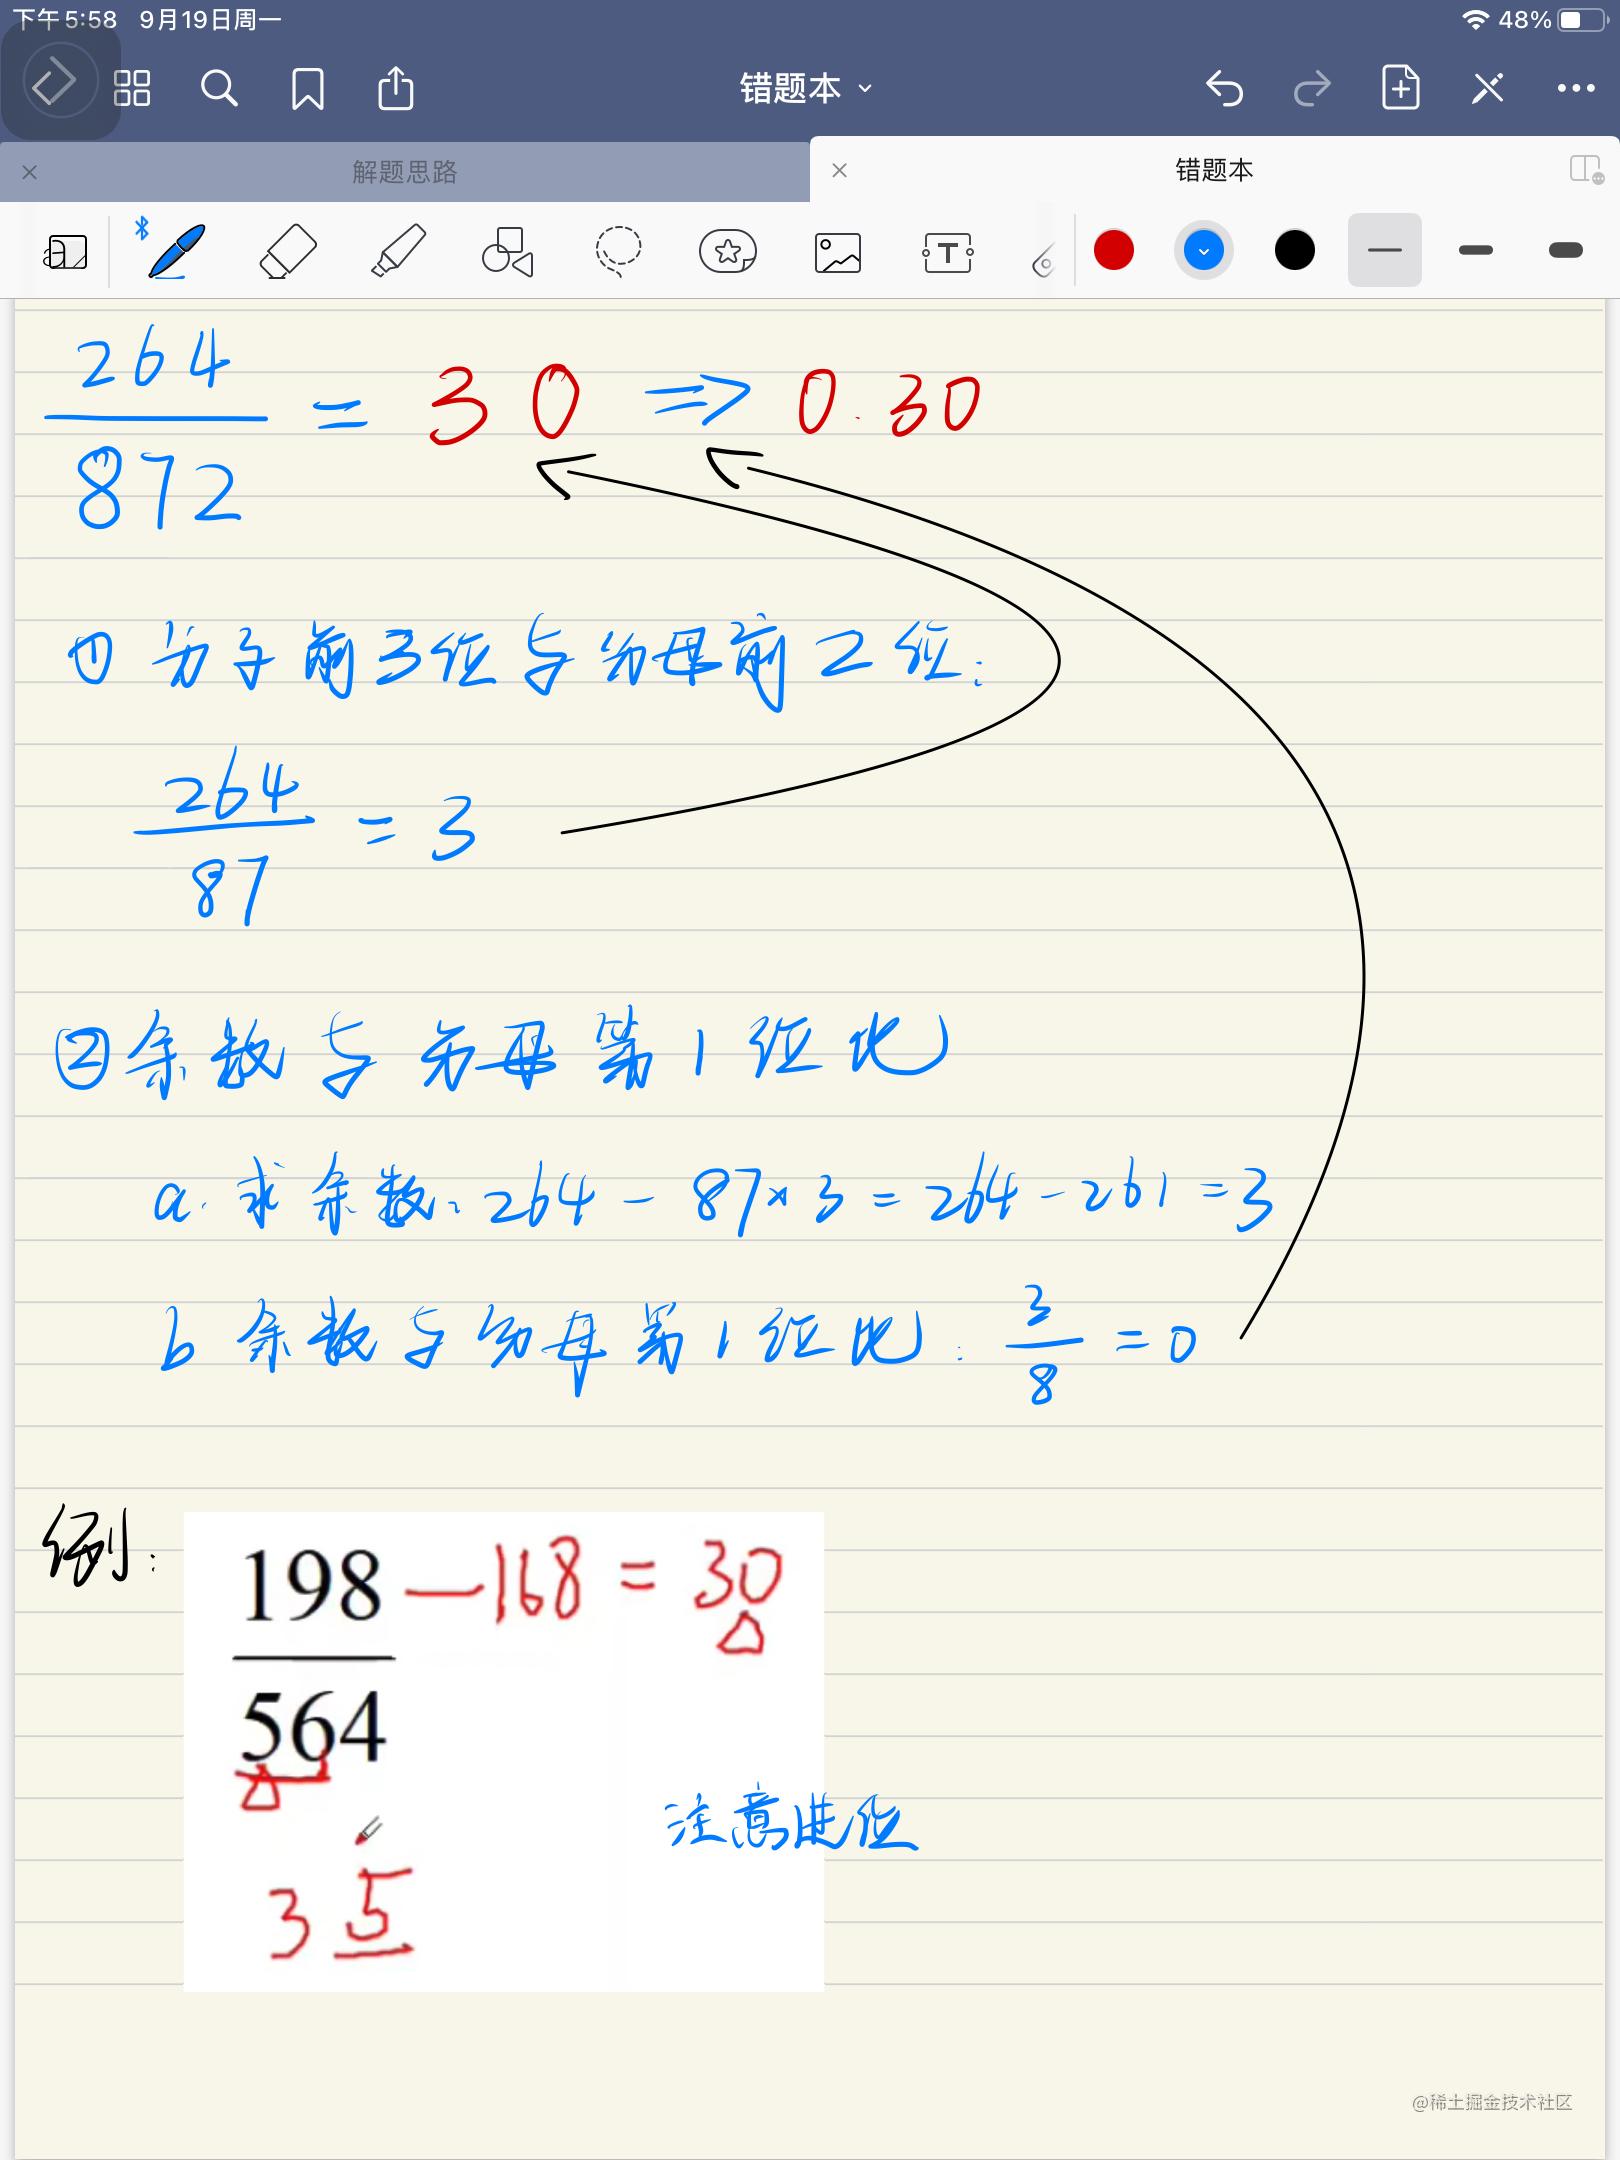 下午5:58 9月19日周一 48%
错题本
解题思路 错题本
264
872
= 30 ⇒ 0.30
① 分子前3位与分母前2位:
264
87
= 3
②余数与分母第1位比
a. 求余数、264 - 87×3 = 264 - 261 = 3
b 余数与分母第1位比: 3/8 = 0
例:
198 — 168 = 30
564
注意进位
35
@稀土掘金技术社区